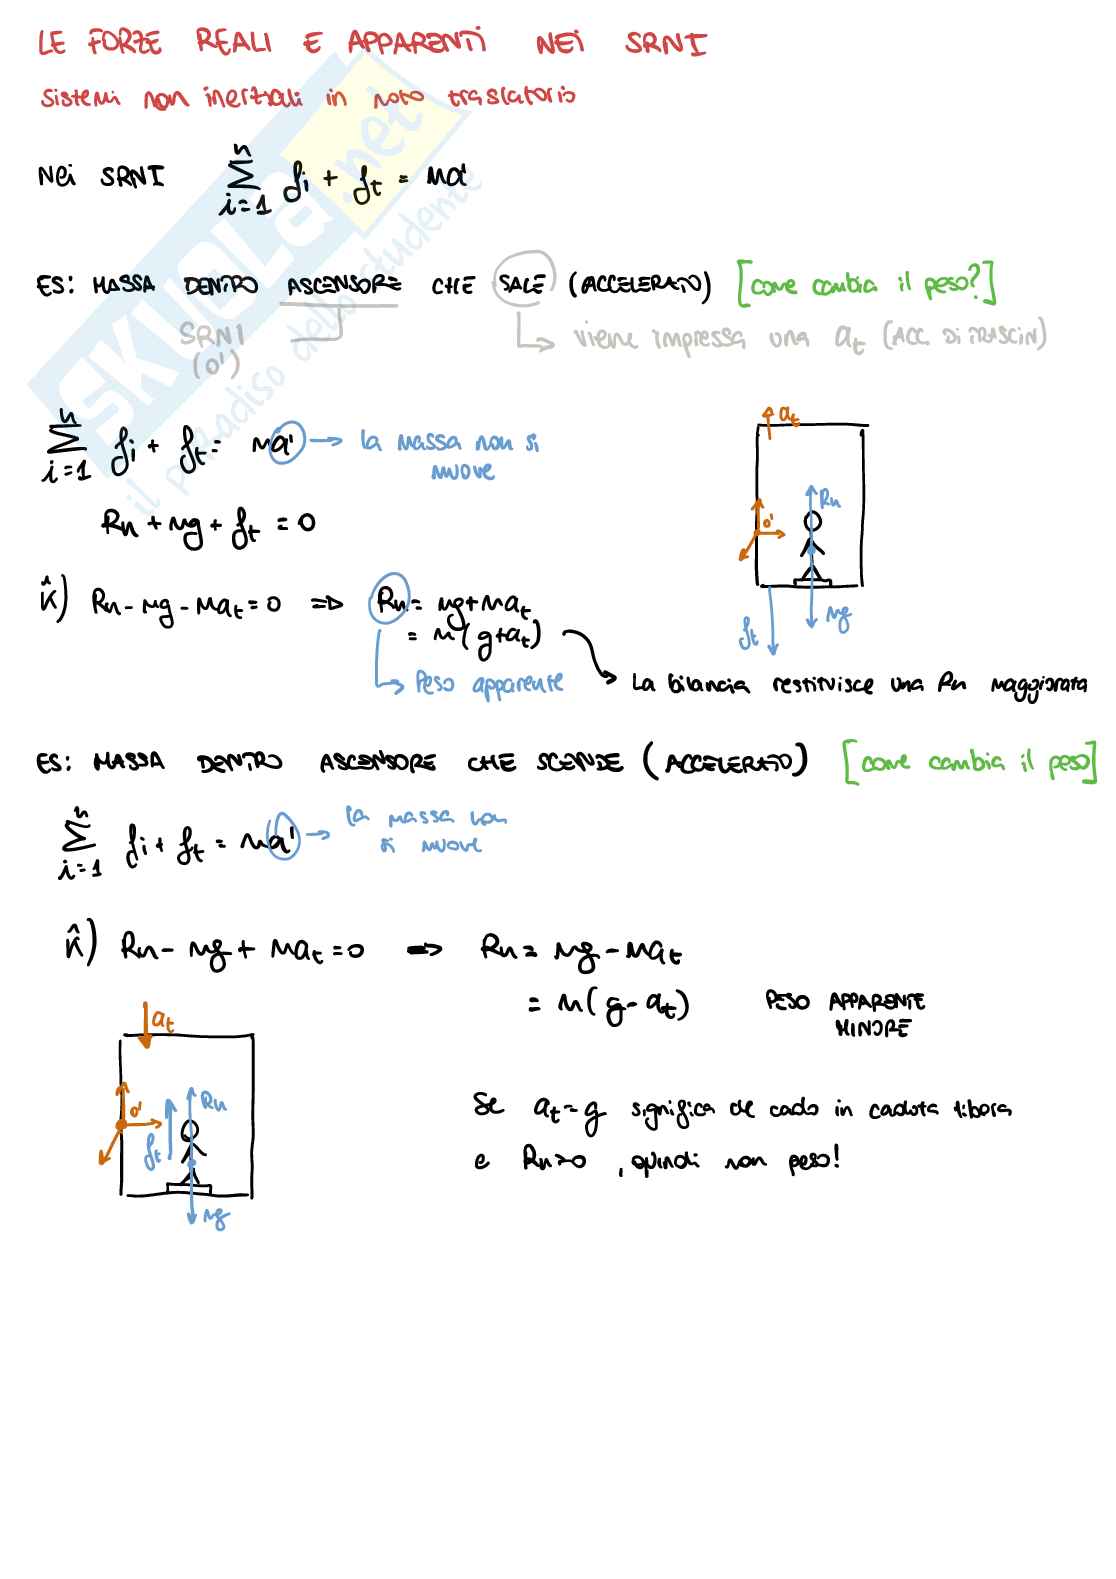 LE FORZE REALI E APPARENTI NEI SRNI
Sistemi non inerziali in moto traslatorio
Nei SRNI n Σ i=1 fi + ft = ma'
ES: MASSA DENTRO ASCENSORE CHE SALE (ACCELERATO) [come cambia il peso?]
SRNI
(O')
viene impressa una at (ACC. DI TRASCIN)
n Σ i=1 fi + ft = ma' → la massa non si
muove
Rn + mg + ft = 0
k̂) Rn - mg - mat = 0 ⇒ Rn = mg + mat
= m(g+at)
Peso apparente
La bilancia restituisce una Rn maggiorata
at
Rn
O'
mg
ft
ES: MASSA DENTRO ASCENSORE CHE SCENDE (ACCELERATO) [come cambia il peso]
n Σ i=1 fi + ft = ma' → la massa non
si muove
k̂) Rn - mg + mat = 0 ⇒ Rn = mg - mat
= m(g - at) PESO APPARENTE
MINORE
at
Rn
O'
ft
mg
Se at = g significa che cado in caduta libera
e Rn=0, quindi non peso!
SKUOLA.net
il paradiso dello studente